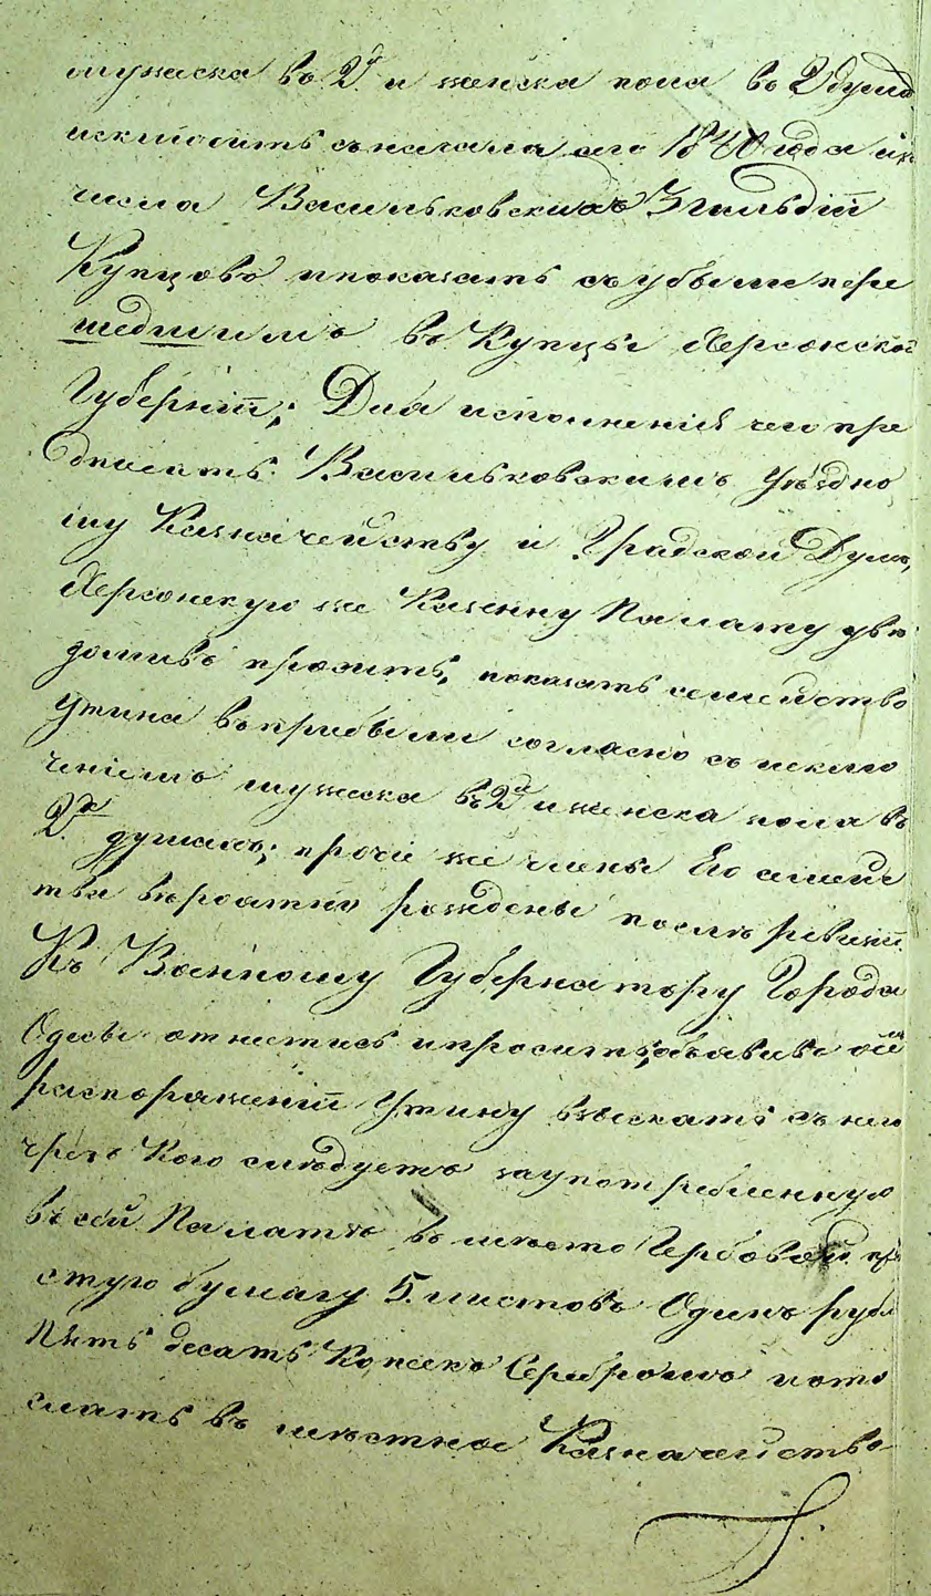 мужеска въ 2й и женска пола въ 2 душах
исключить съ начала сего 1840 года изъ
числа Васильковскихъ 3 гильдіи
Купцовъ и показать съ убыли пере
шедшимъ въ Купцы Херсонской
Губерніи; Для исполненія чего пре
дписать Васильковскимъ Уѣздно
му Казначейству и Градской Думѣ,
Херсонскую же Казенну Палату увѣ
домивъ просить, показать семейство
Утина въ прибыли согласно съ исклю
ченіемъ мужеска въ 2й и женска пола въ
2хъ душахъ; прочіе же члены Его семейс
тва вѣроятно рождены послѣ ревизіи.
Къ Военному Губернатору Города
Одессы отнестись и просить, объявивъ о семъ
распоряженіи Утину взыскать съ него
чрезъ Кого слѣдуетъ за употребленную
въ сей Палатѣ въ мѣсто Гербовой пр
стую бумагу 5. листовъ Одинъ рубл
Пять десятъ Копѣекъ Серебромъ и ото
слать въ мѣстное Казначейство